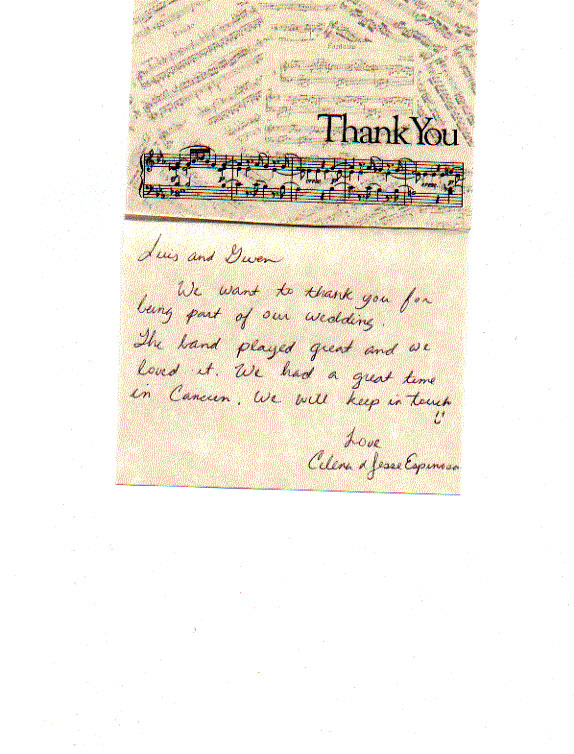 Thank You
Luis and Gwen
We want to thank you for
being part of our wedding.
The band played great and we
loved it. We had a great time
in Cancun. We will keep in touch
Love
Celena & Jesse